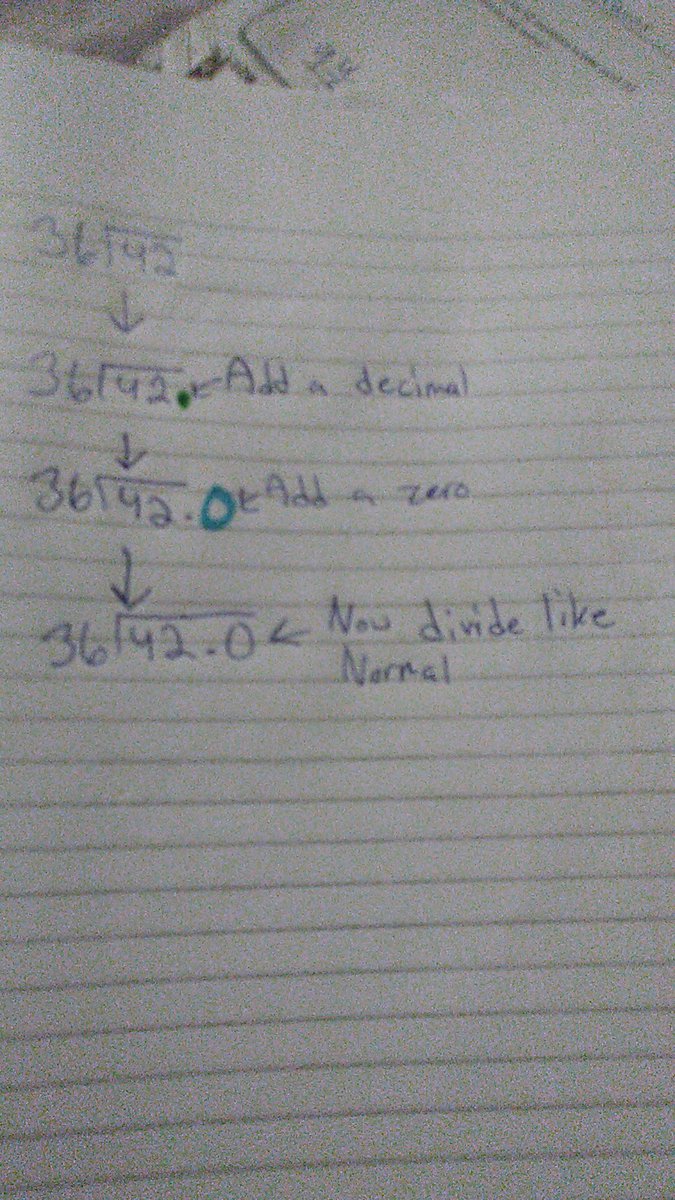 36⟌42
↓
36⟌42. ← Add a decimal
↓
36⟌42.0 ← Add a zero
↓
36⟌42.0 ← Now divide like
Normal